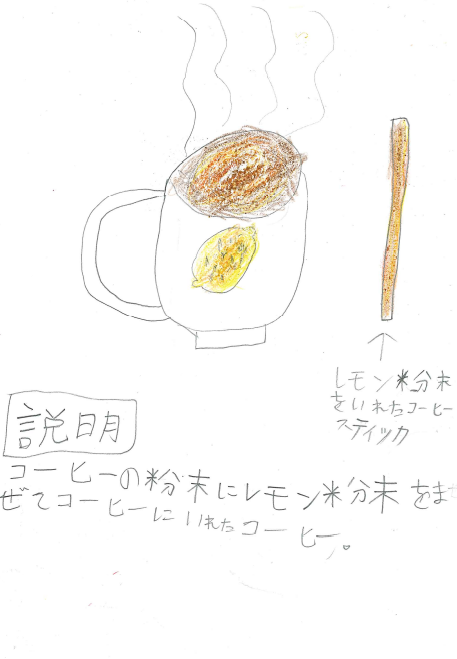 レモン粉末
をいれたコーヒー
スティッカ
説明
コーヒーの粉末にレモン粉末をま
ぜてコーヒーにいれたコーヒー。